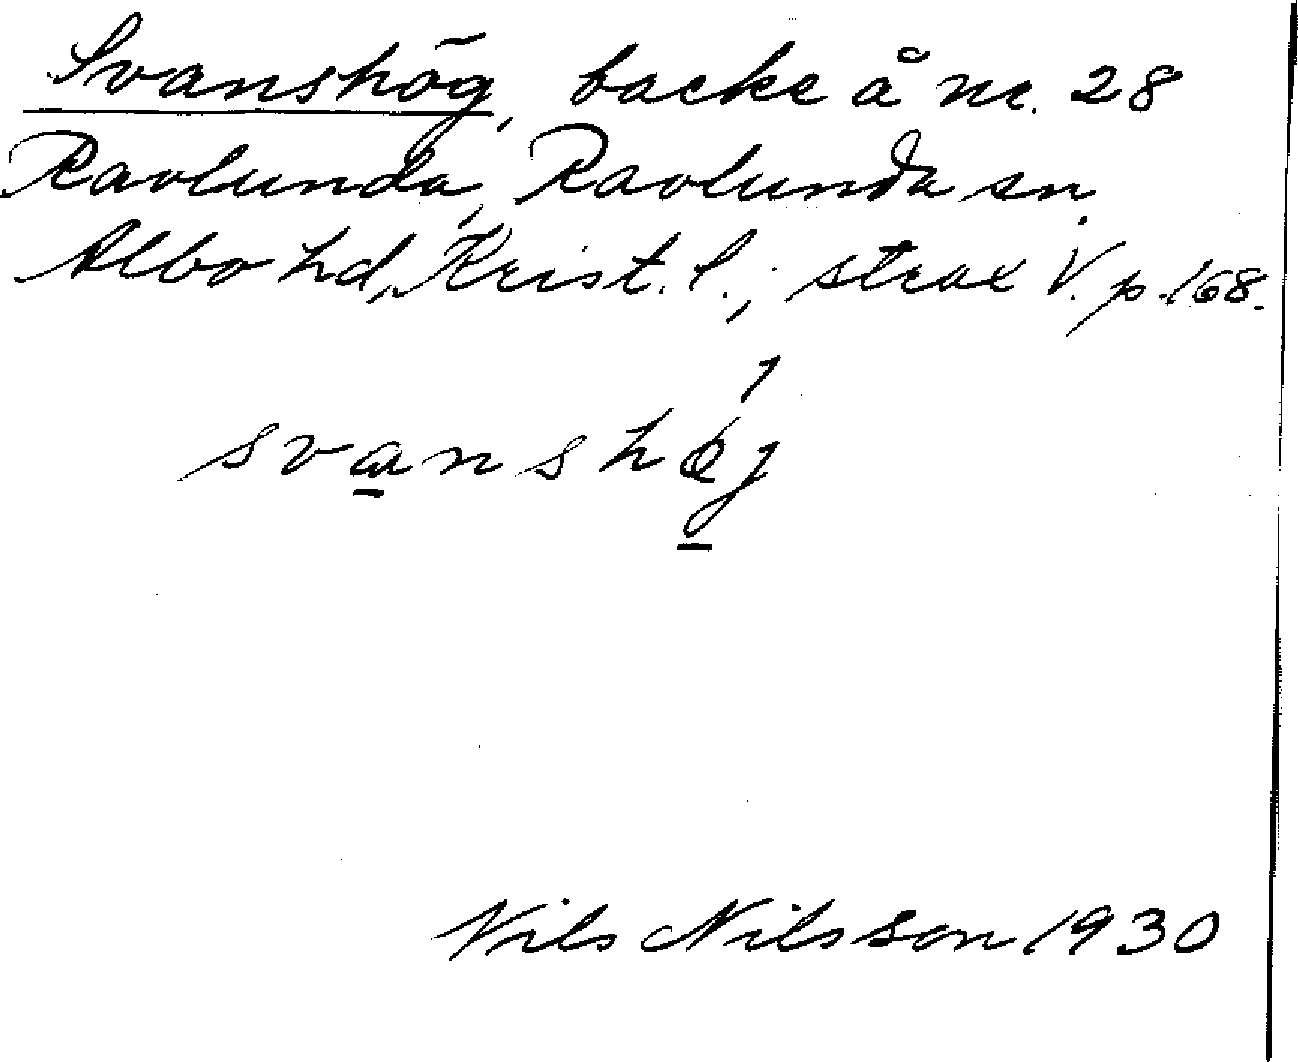 Svanshög, backe å nr. 28
Ravlunda, Ravlunda sn,
Albo hd, Krist. l.; strax V. p. 168.
svanshöj
Nils Nilsson 1930